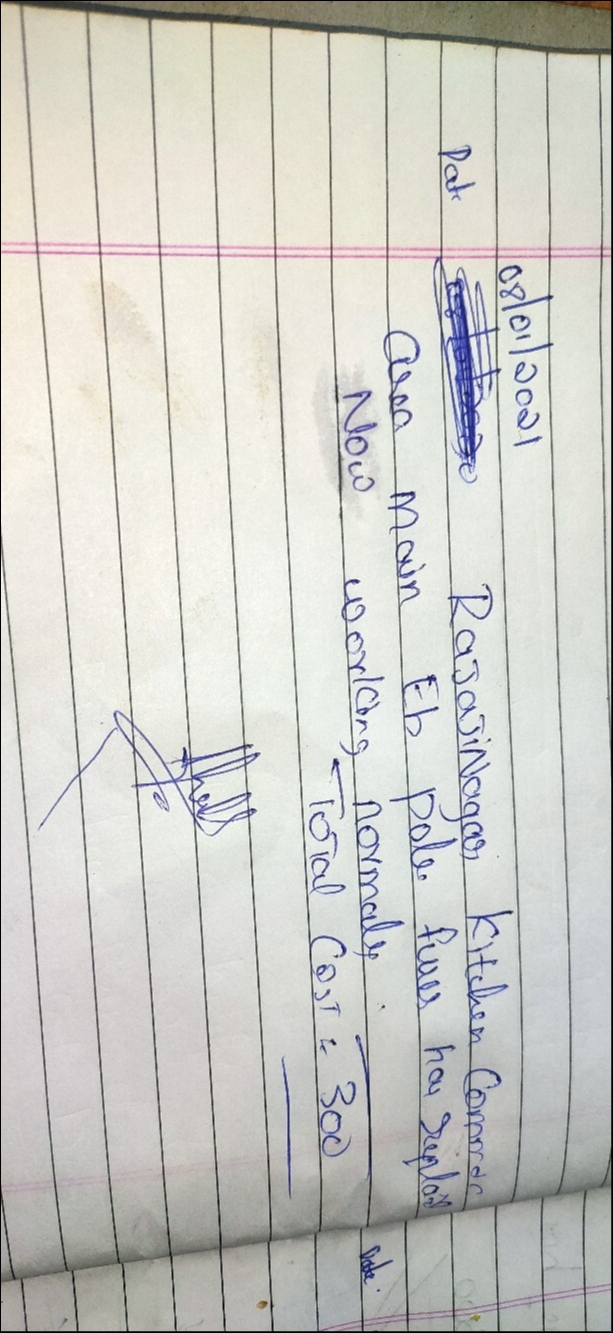 08/01/2021
Date
RajajiNagar Kitchen Common
area main Eb pole fuses has replas
Now working normaly.
Total Cost = 300
Date.